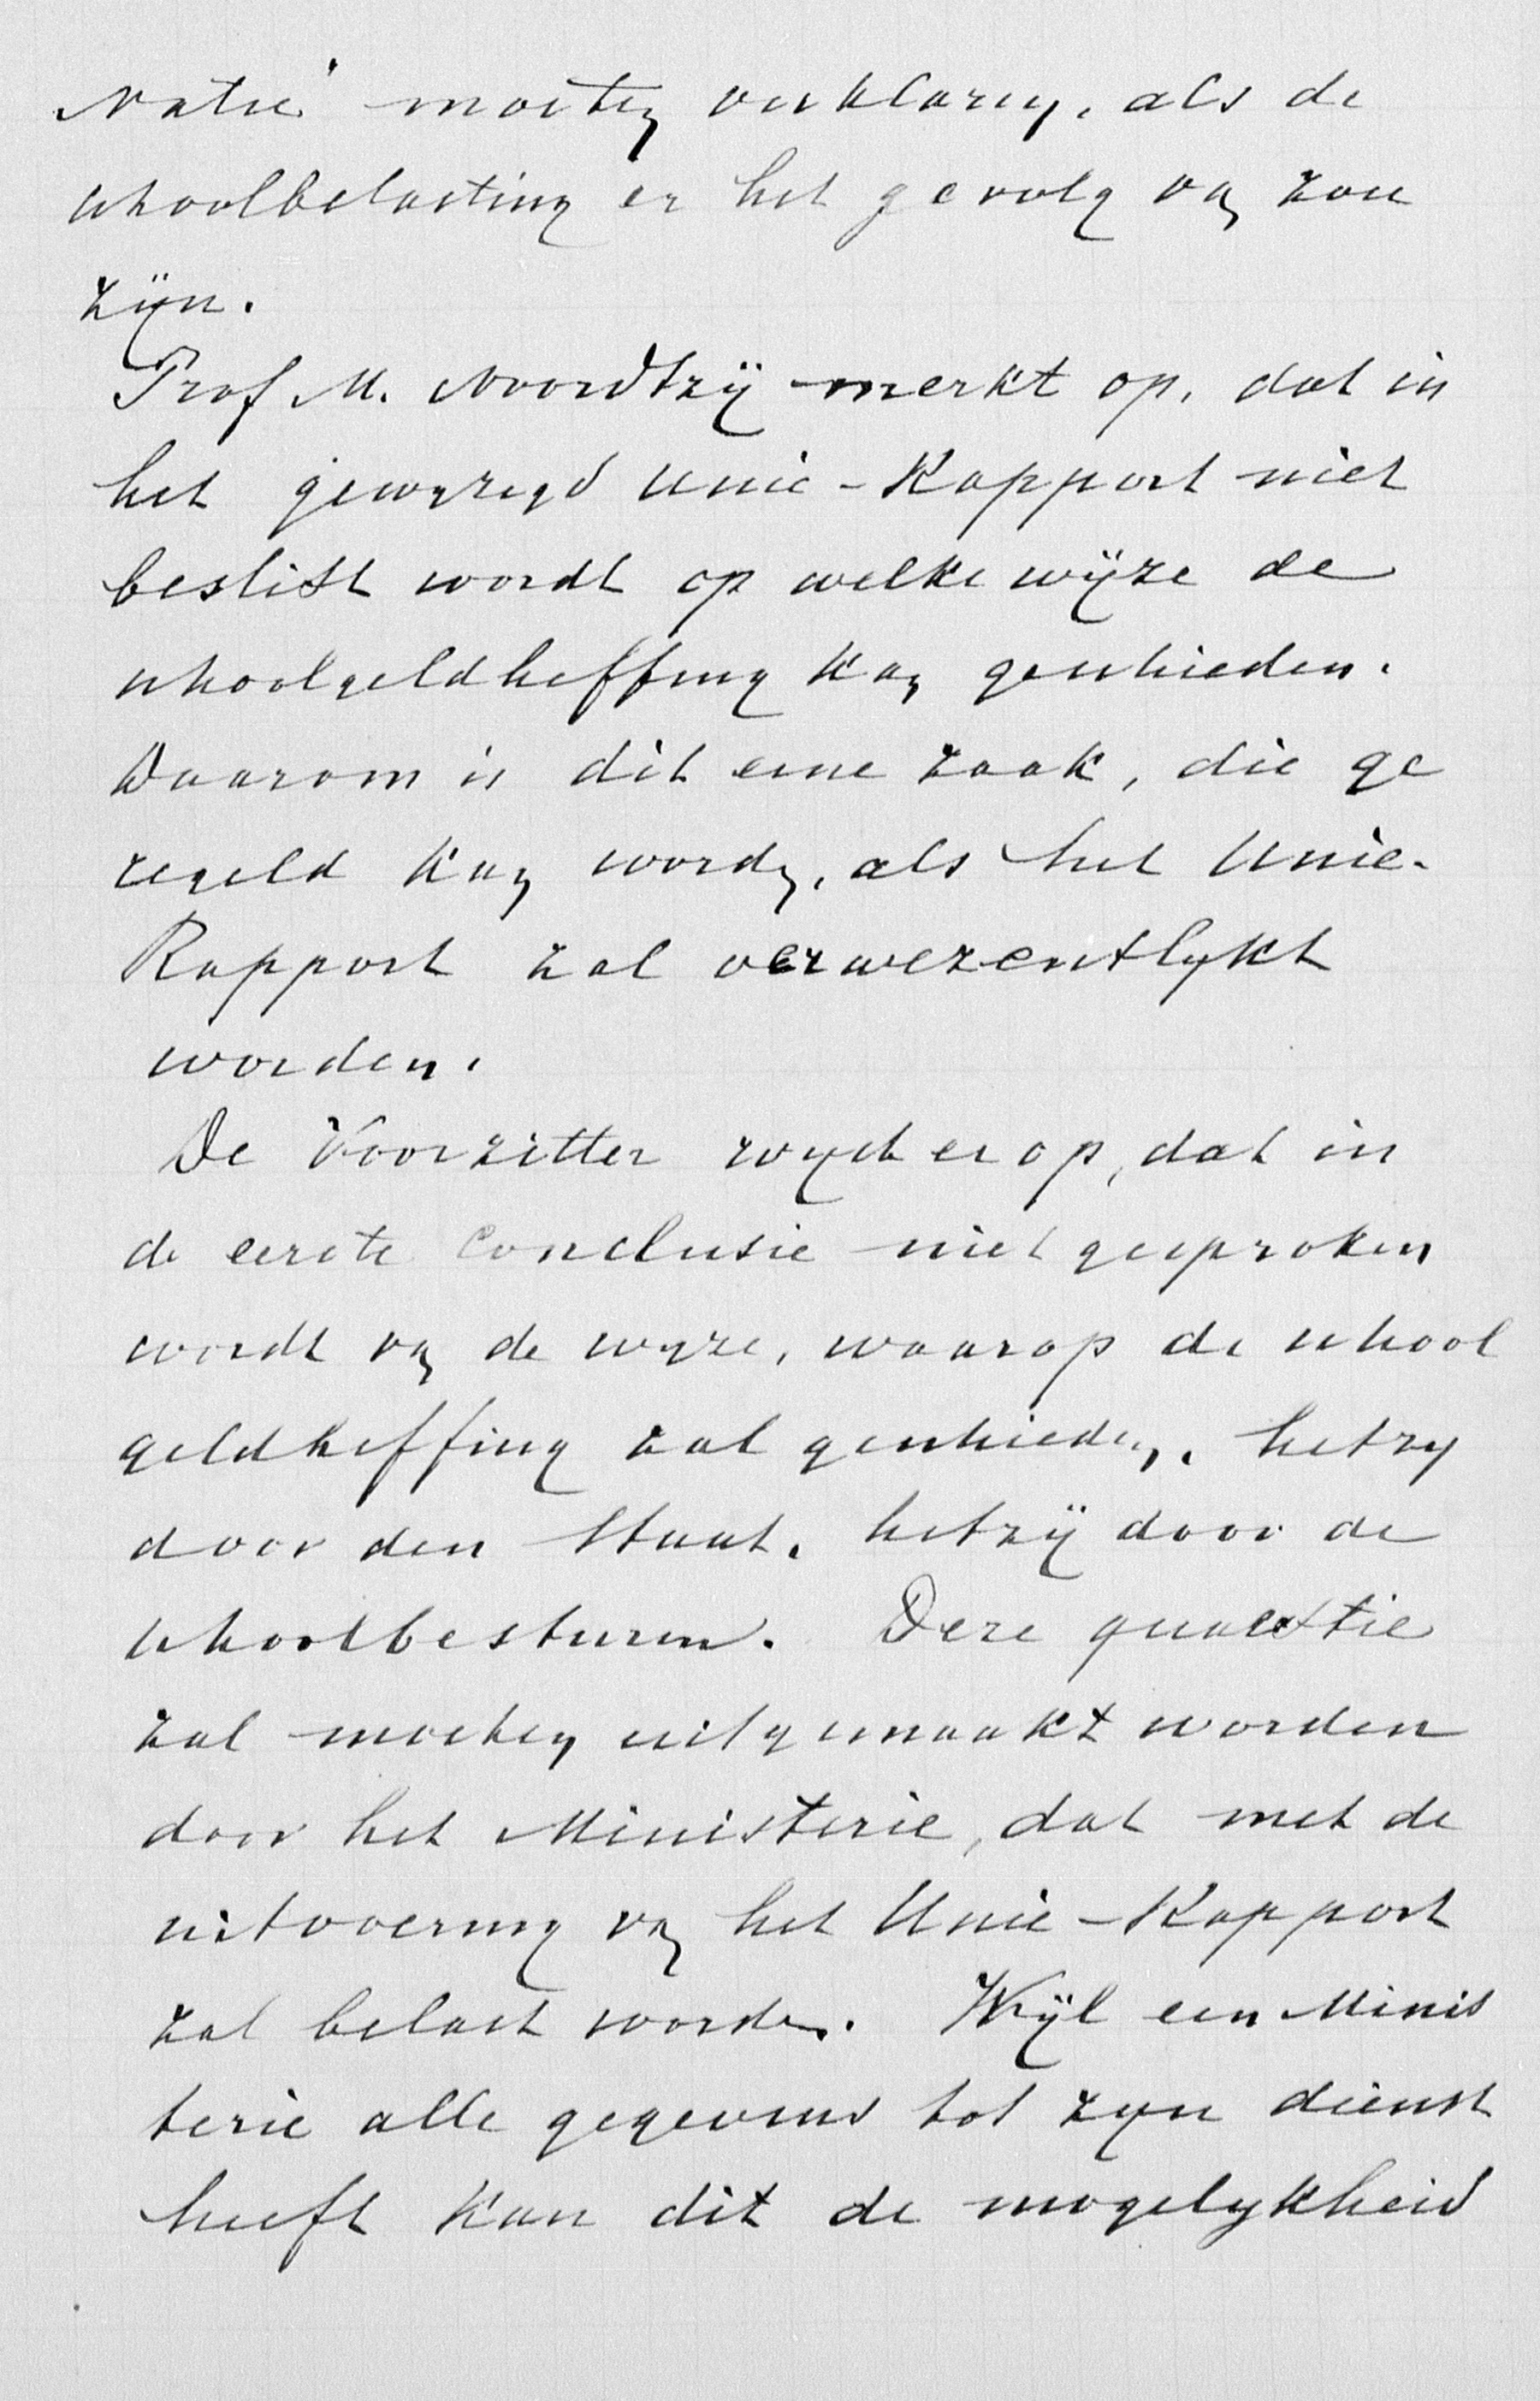 Natie' moeten verklaren, als de
schoolbelasting er het gevolg van zou
zijn.
Prof M. Noordtzij merkt op, dat in
het gewyzigd Unie-Rapport niet
beslist wordt op welke wijze de
schoolgeldheffing kan geschieden.
Daarom is dit eene zaak, die ge
regeld kan worden, als het Unie-
Rapport zal verwezentlykt
worden.
De Voorzitter wyst er op, dat in
de eerste Conclusie niet gesproken
wordt van de wyze, waarop de school
geldheffing zal geschieden, hetzy
door den Staat, hetzij door de
schoolbesturen. Deze quaestie
zal moeten uitgemaakt worden
door het Ministerie, dat met de
uitvoering van het Unie-Rapport
zal belast worden. Wijl een Minis
terie alle gegevens tot zyn dienst
heeft kan dit de mogelykheid